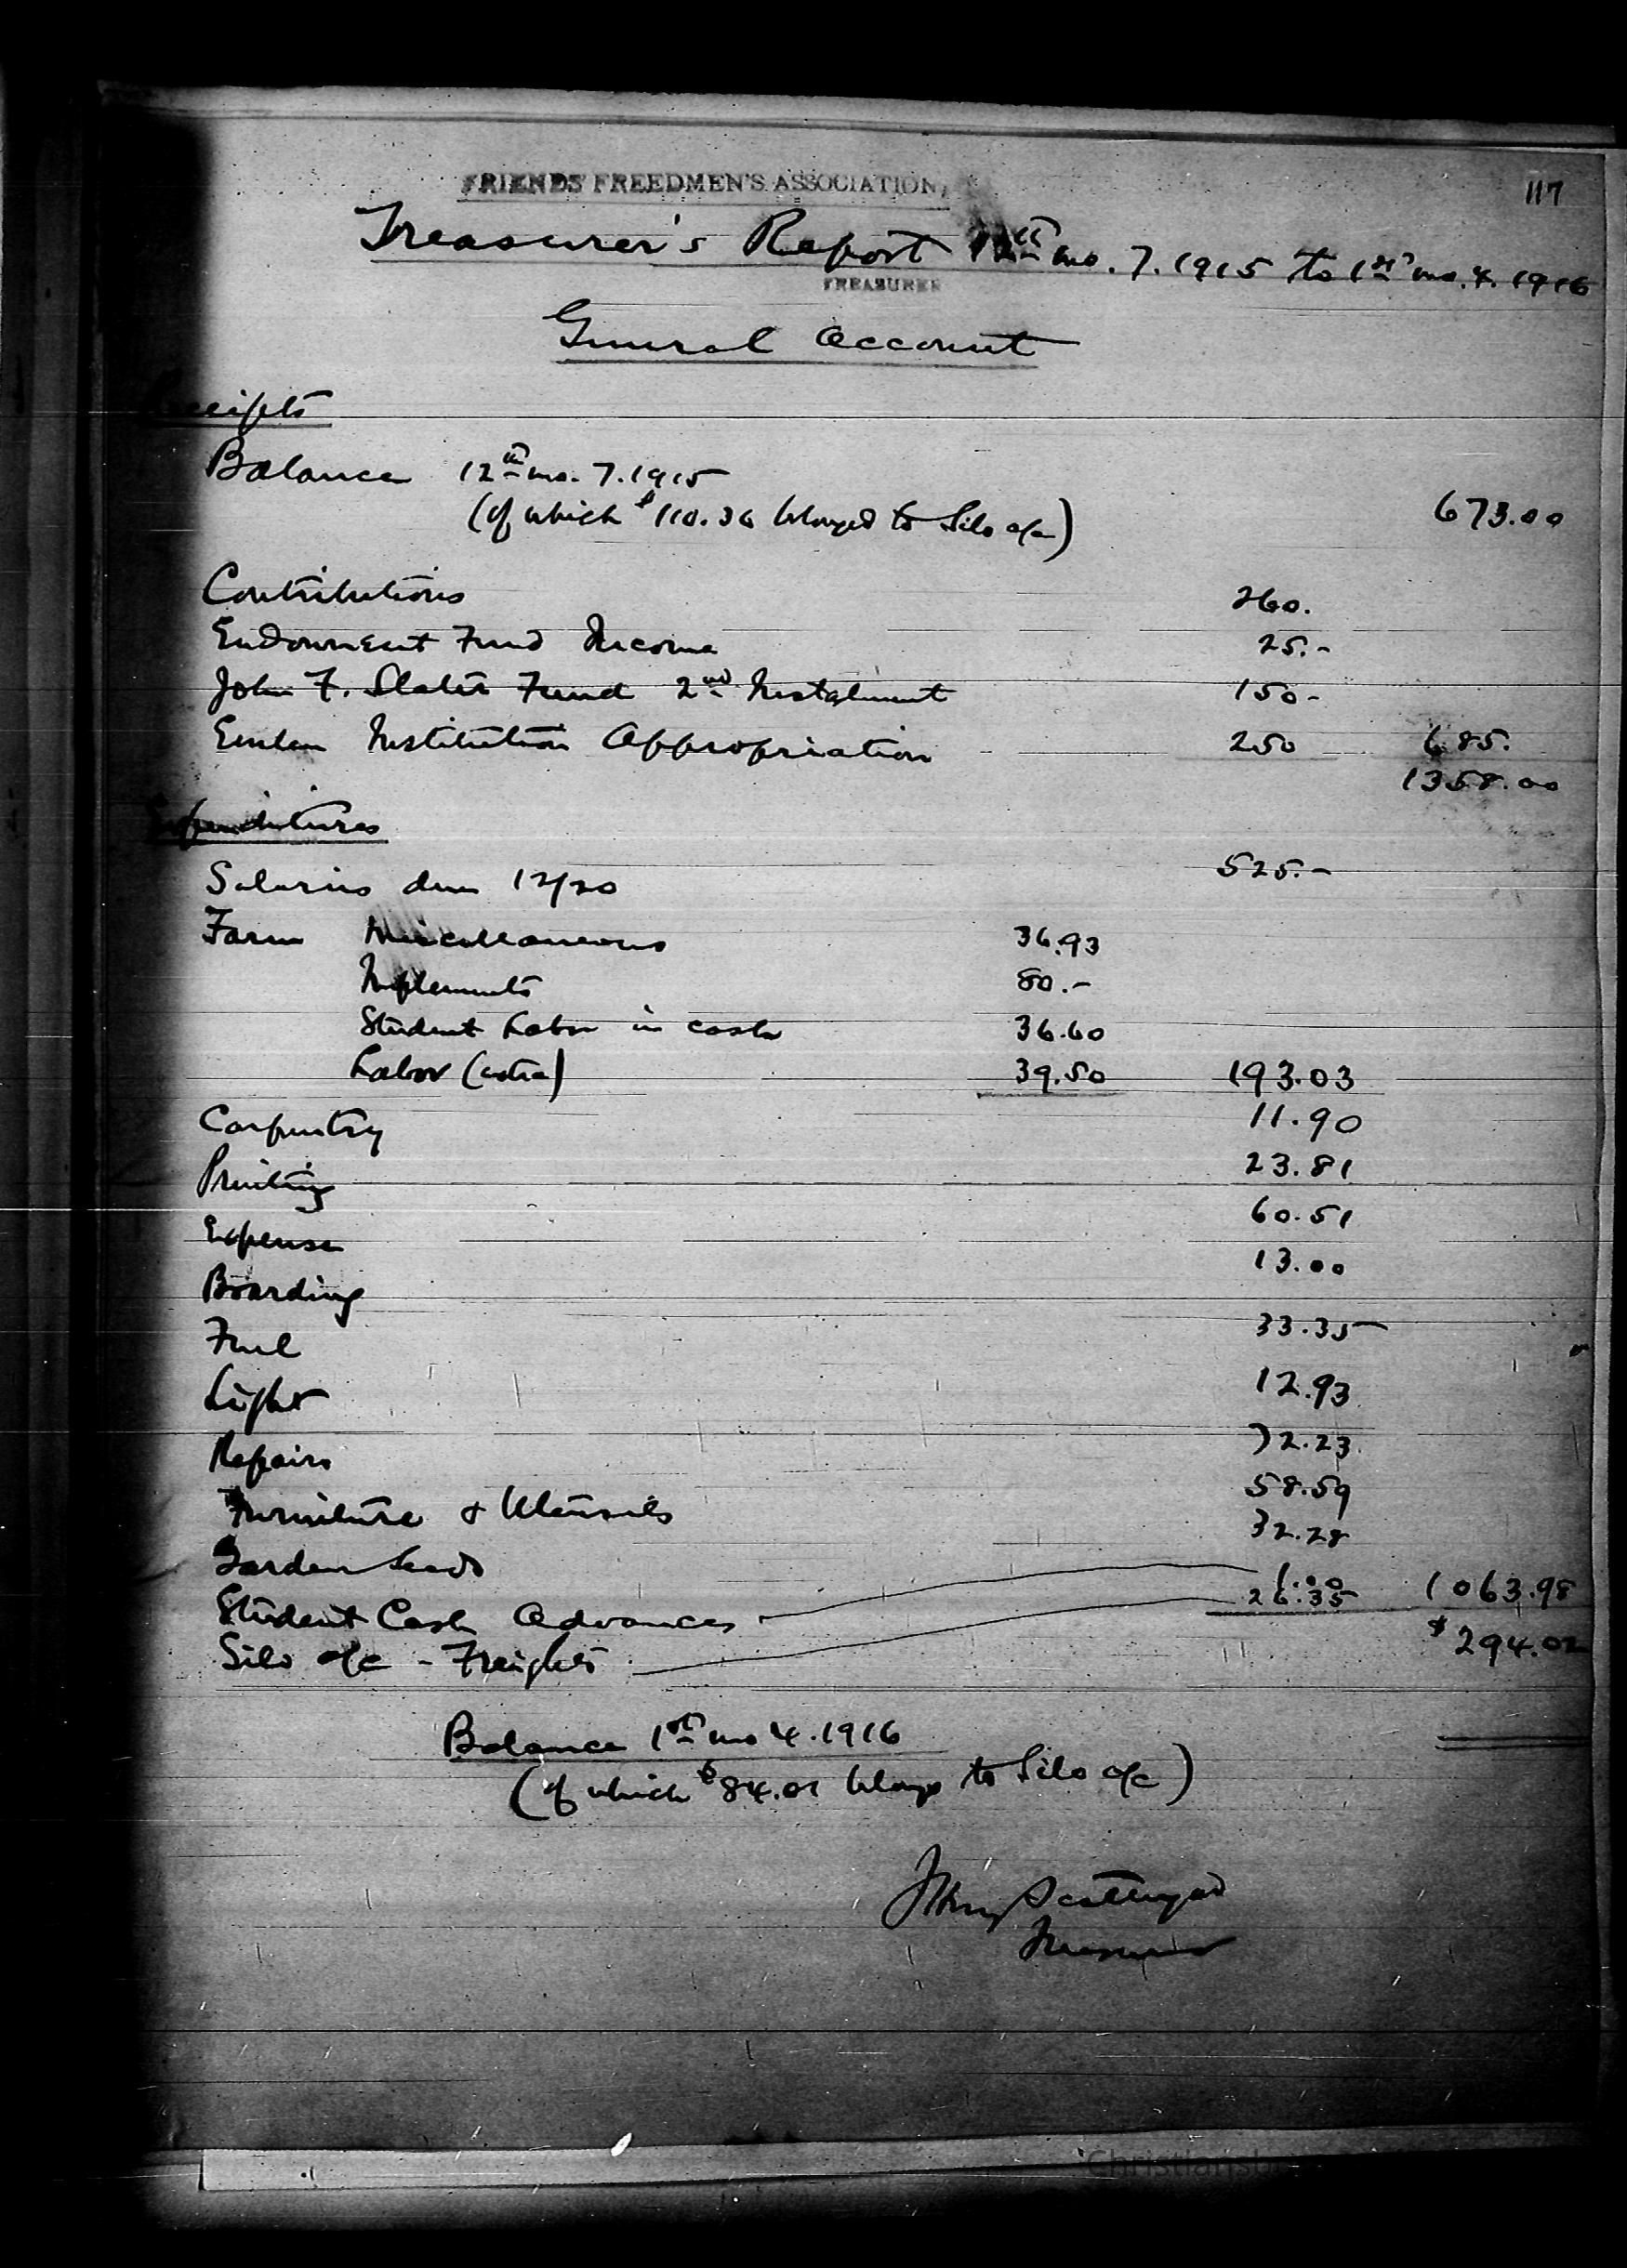 117
FRIENDS' FREEDMEN'S ASSOCIATION,
Treasurer's Report 12th mo. 7. 1915 to 1st mo. 4. 1916
TREASURER
General Account
Receipts
Balance 12th mo. 7. 1915
(of which $110.36 belonged to Silo a/c) 673.00
Contributions 260.
Endowment Fund Income 25.-
John F. Slater Fund 2nd Instalment 150-
Emlen Institution Appropriation 250 685.
1358.00
Expenditures
Salaries due 12/20 525.-
Farm Miscellaneous 36.93
Implements 80.-
Student Labor in cash 36.60
Labor (extra) 39.50 193.03
Carpentry 11.90
Printing 23.81
Expense 60.51
Boarding 13.00
Fuel 33.35
Light 12.93
Repairs 72.23
Furniture & Utensils 58.59
Garden Seeds 32.28
Student Cash Advances 1.00
Silo a/c - Freights 26.35 1063.98
$294.02
Balance 1st mo 4. 1916
(of which $84.01 belongs to Silo a/c)
J Henry Scattergood
Treasurer